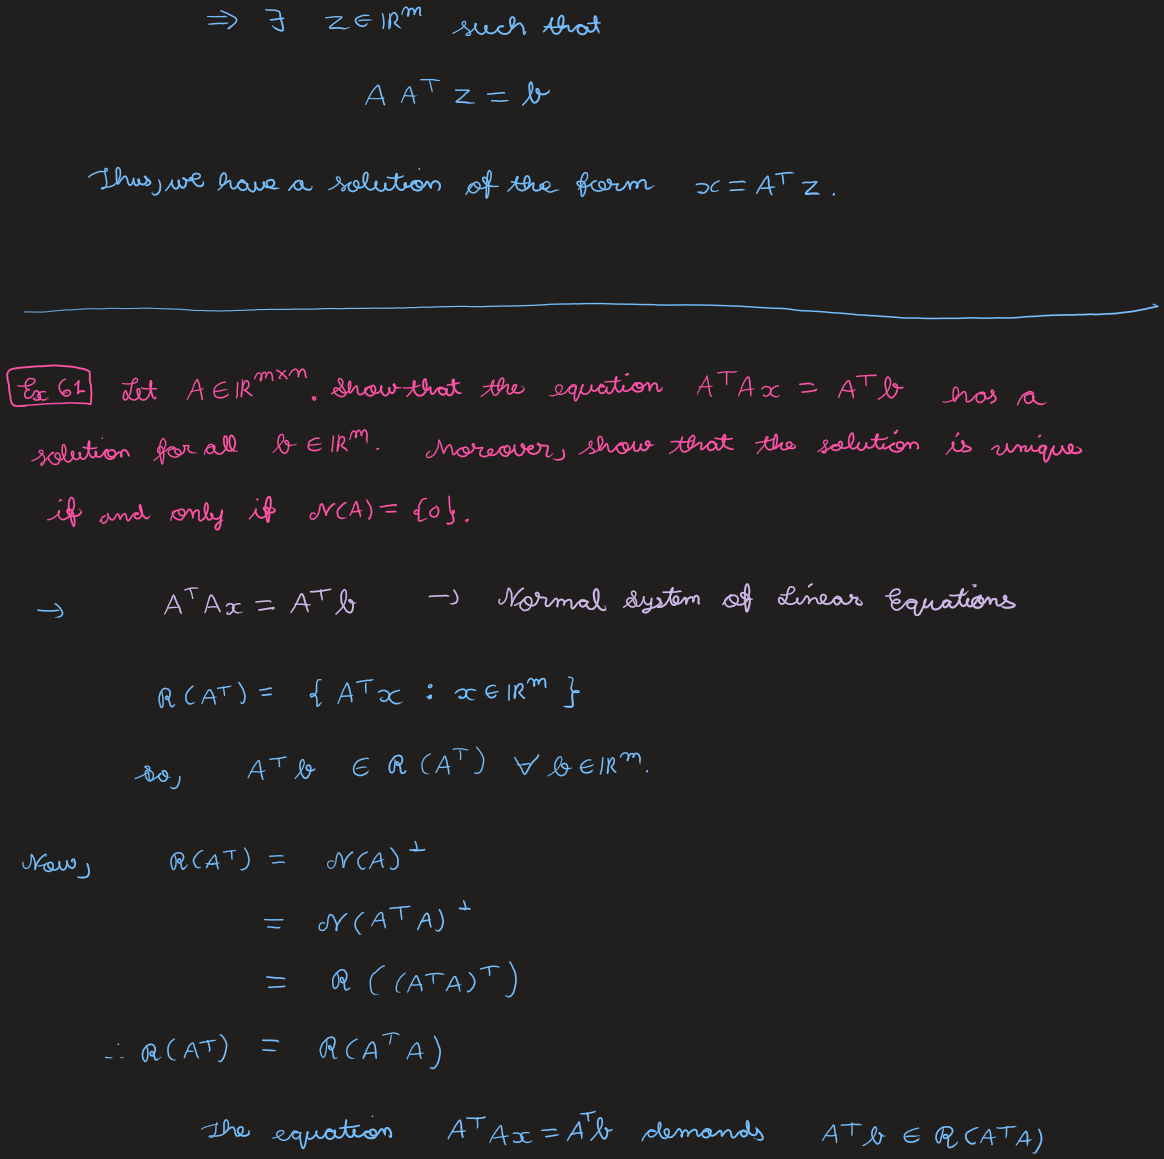 ⇒ ∃ z ∈ ℝᵐ such that
A Aᵀ z = b
Thus, we have a solution of the form x = Aᵀ z.
Ex 61 Let A ∈ ℝᵐˣⁿ. Show that the equation AᵀAx = Aᵀb has a
solution for all b ∈ ℝᵐ. Moreover, show that the solution is unique
if and only if N(A) = {0}.
→ AᵀAx = Aᵀb → Normal System of Linear Equations
R(Aᵀ) = { Aᵀx : x ∈ ℝᵐ }
So, Aᵀb ∈ R(Aᵀ) ∀ b ∈ ℝᵐ.
Now, R(Aᵀ) = N(A)⊥
= N(AᵀA)⊥
= R((AᵀA)ᵀ)
∴ R(Aᵀ) = R(AᵀA)
The equation AᵀAx = Aᵀb demands Aᵀb ∈ R(AᵀA)